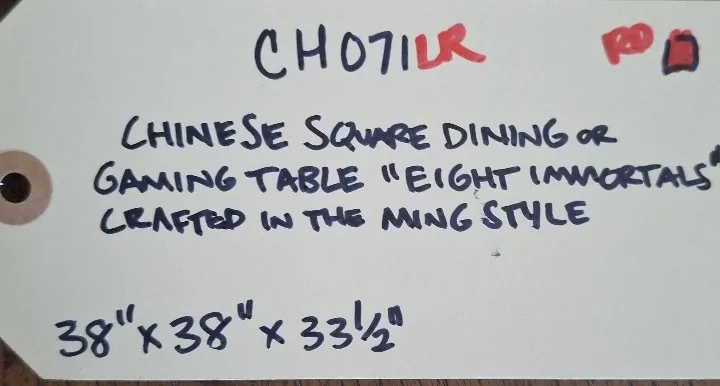 CH071LR RD
CHINESE SQUARE DINING OR
GAMING TABLE "EIGHT IMMORTALS"
CRAFTED IN THE MING STYLE
38" x 38" x 33 1/2"